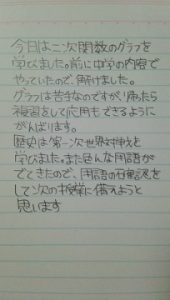 今日は二次関数のグラフを
学びました。前に中学の内容で
やっていたので、解けました。
グラフは苦手なのですが、帰ったら
復習をして応用もできるように
がんばります。
歴史は第一次世界大戦を
学びました。また色んな用語が
でてきたので、用語の確認を
して次の授業に備えようと
思います